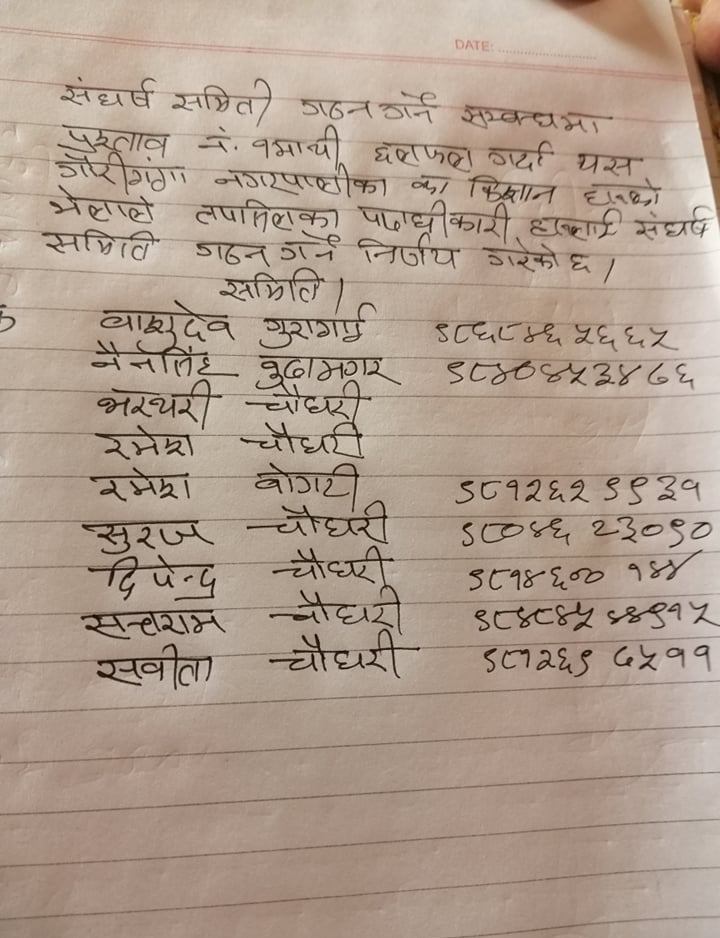 DATE:
संघर्ष समिती गठन गर्ने सम्बन्धमा
प्रस्ताव नं. १माथी छलफल गर्दा यस
गौरीगंगा नगरपालीका का किसान हरुको
भेलाले तपसिलका पदाधीकारी हरुलाई संघर्ष
समिति गठन गर्ने निर्णय गरेको छ।
समिति।
वासुदेव गुरागाई ९८६८४६५६६५
नैनसिंह बुढामगर ९८४०४५३४७६
भरथरी चौधरी
रमेश चौधरी
रमेश बोगटी ९८१२६२९९३१
सुरज चौधरी ९८०४६२३०९०
दिपेन्द्र चौधरी
सन्तराम चौधरी
सवीता चौधरी ९८१२६९७५११